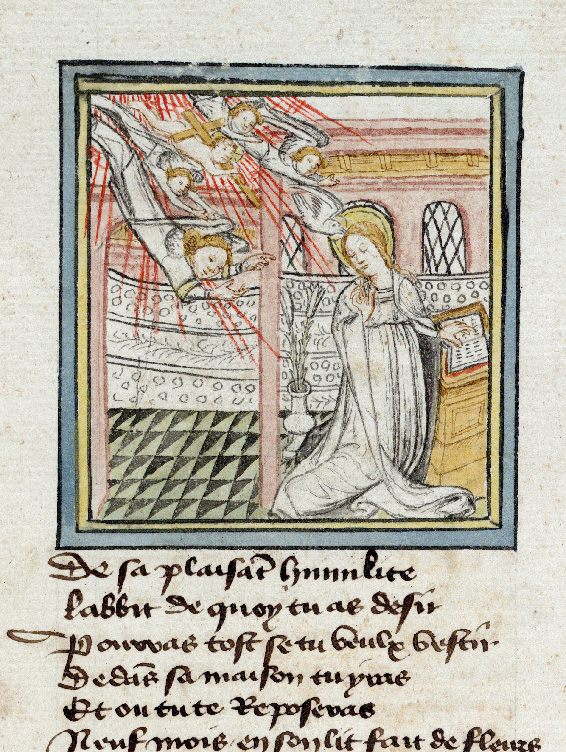 De sa plaisāt humilite
Labbit de quoy tu as desir
Pourras tost se tu veulx vestir
Dedās sa maison tu yras
Et ou tu te Reposeras
Neuf mois en son lit fait de fleurs